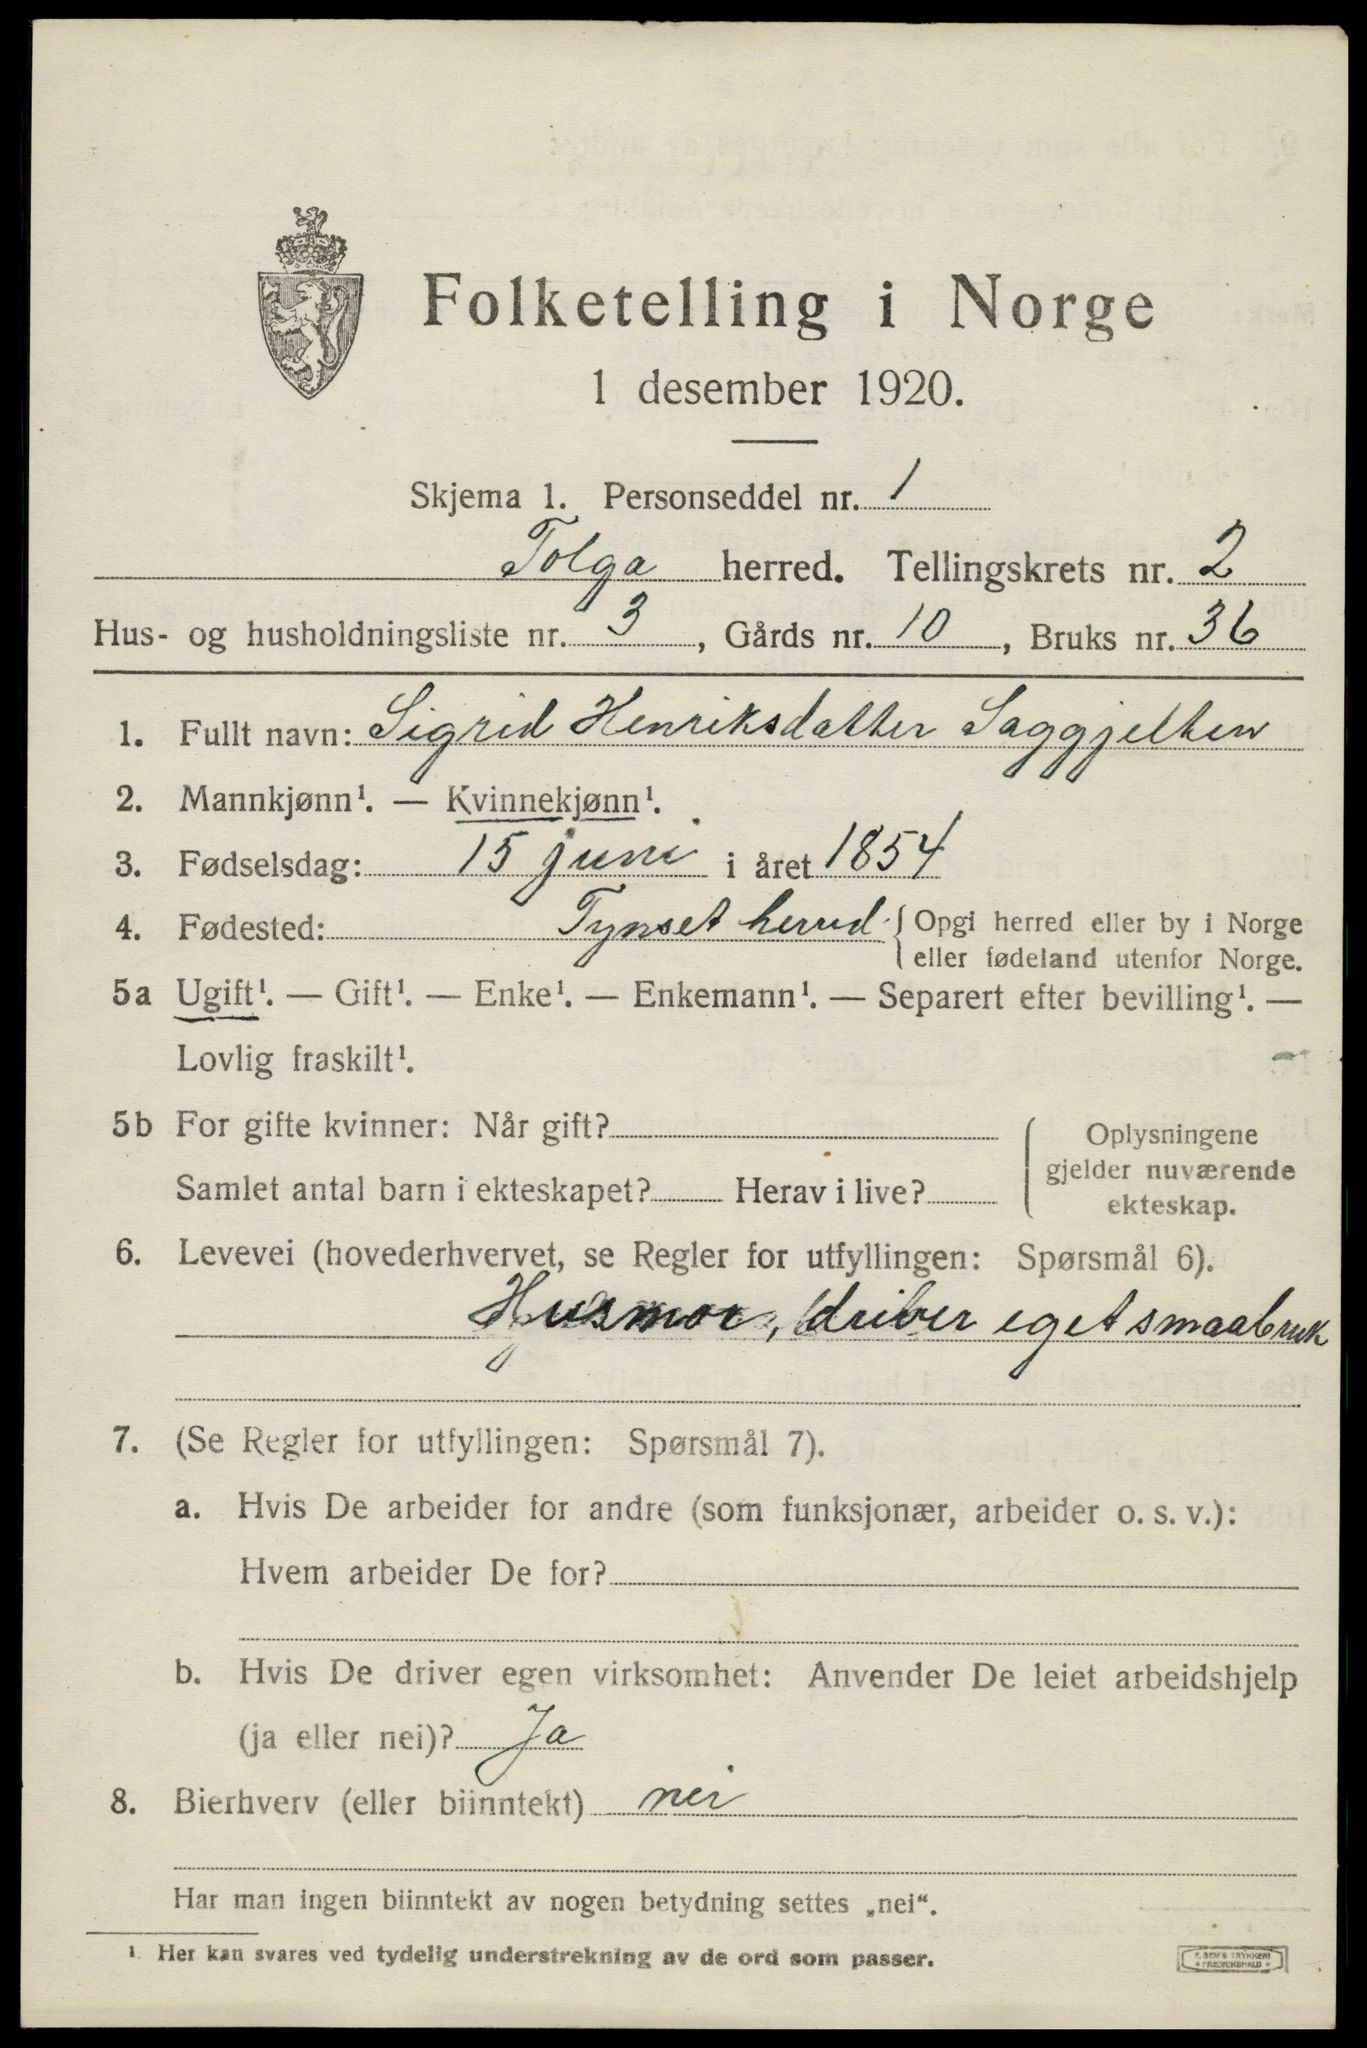 Folketelling i Norge
1 desember 1920.
Skjema 1. Personseddel nr. 1
Tolga herred. Tellingskrets nr. 2
Hus- og husholdningsliste nr. 3, Gårds nr. 10, Bruks nr. 36
1. Fullt navn: Sigrid Henriksdatter Saggjelten
2. Mannkjønn¹. — Kvinnekjønn¹.
3. Fødselsdag: 15 juni i året 1854
4. Fødested: Tynset herred. { Opgi herred eller by i Norge
eller fødeland utenfor Norge.
5a Ugift¹. — Gift¹. — Enke¹. — Enkemann¹. — Separert efter bevilling¹. —
Lovlig fraskilt¹.
5b For gifte kvinner: Når gift?
Samlet antal barn i ekteskapet? Herav i live?
Oplysningene
gjelder nuværende
ekteskap.
6. Levevei (hovederhvervet, se Regler for utfyllingen: Spørsmål 6).
Husmor, driver eget smaabruk
7. (Se Regler for utfyllingen: Spørsmål 7).
a. Hvis De arbeider for andre (som funksjonær, arbeider o. s. v.):
Hvem arbeider De for?
b. Hvis De driver egen virksomhet: Anvender De leiet arbeidshjelp
(ja eller nei)? Ja
8. Bierhverv (eller biinntekt) nei
Har man ingen biinntekt av nogen betydning settes „nei“.
¹ Her kan svares ved tydelig understrekning av de ord som passer.